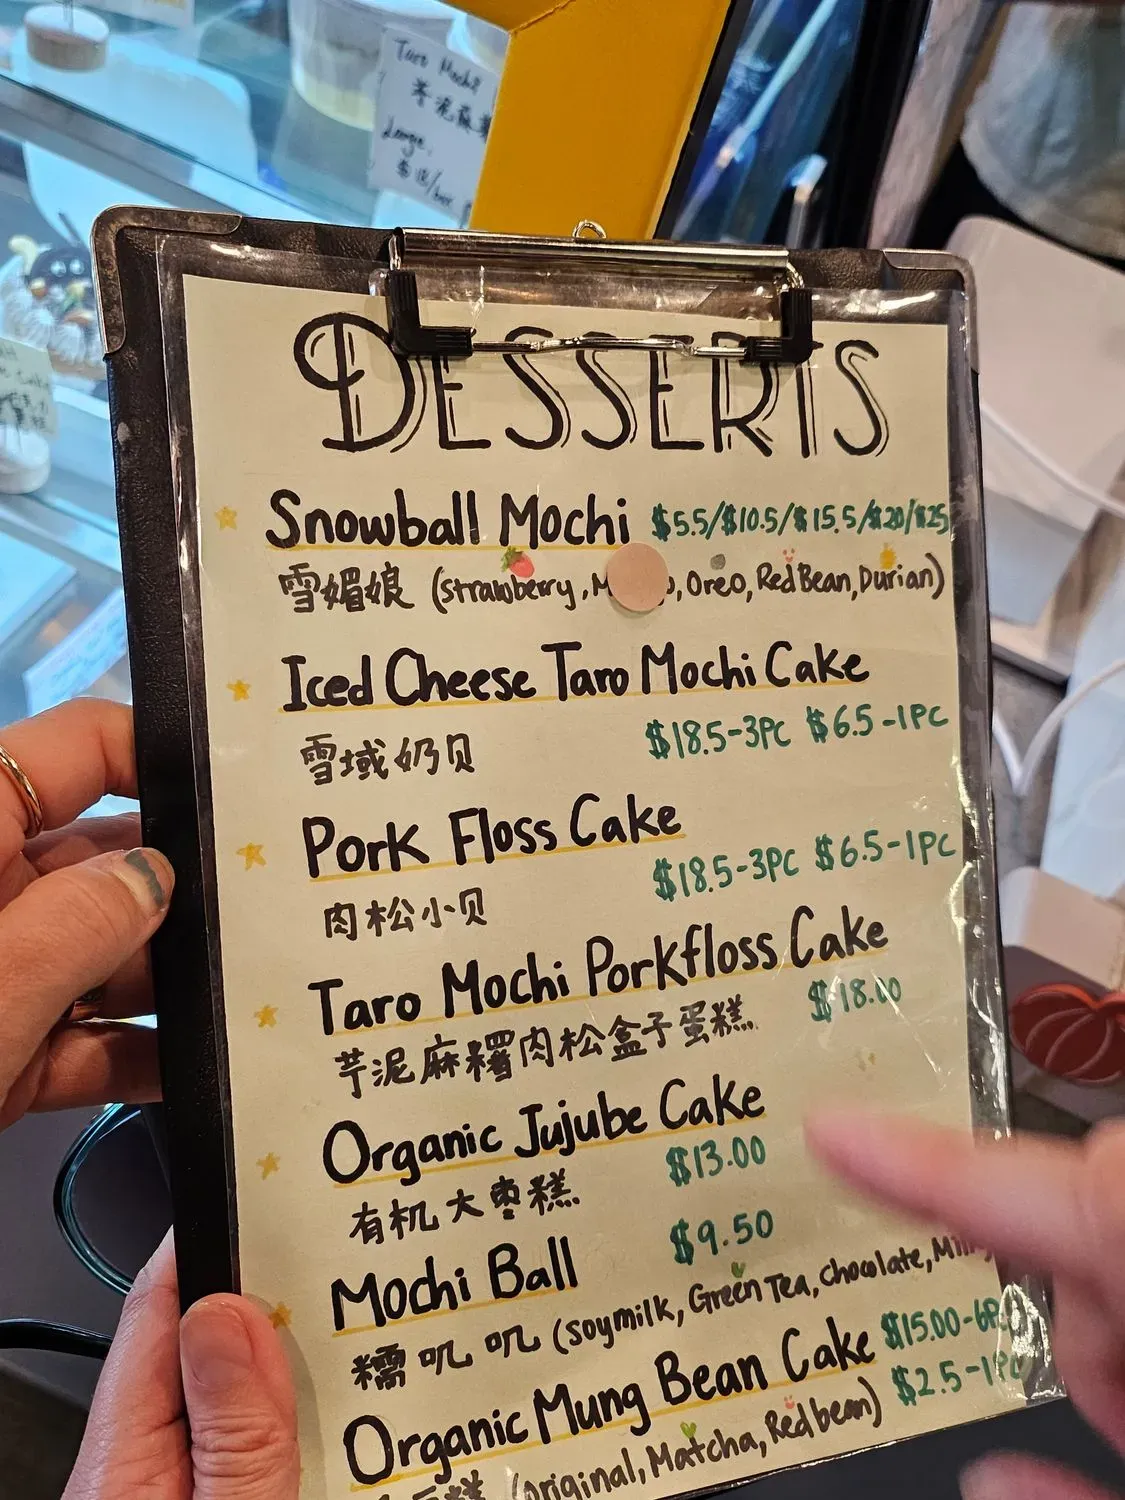 Taro Mochi
芋泥麻
Large.
$18/box.
DESSERTS
Snowball Mochi $5.5/$10.5/$15.5/$20/$25
雪媚娘 (strawberry, , Oreo, Red Bean, Durian)
Iced Cheese Taro Mochi Cake
雪域奶贝 $18.5-3PC $6.5-1PC
Pork Floss Cake
肉松小贝 $18.5-3PC $6.5-1PC
Taro Mochi Porkfloss Cake
芋泥麻糬肉松盒子蛋糕 $18.00
Organic Jujube Cake
有机大枣糕 $13.00
Mochi Ball $9.50
糯叽叽 (soymilk, Green Tea, chocolate,
Organic Mung Bean Cake $15.00-6PC
(original, Matcha, Redbean) $2.5-1PC